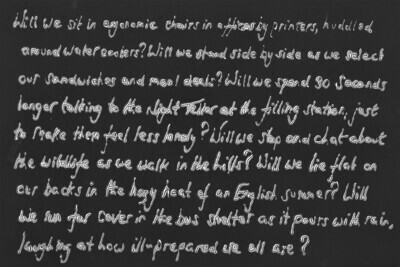 Will we sit in ergonomic chairs in offices by printers, huddled
around water coolers? Will we stand side by side as we select
our sandwiches and meal deals? Will we spend 30 seconds
longer talking to the night Teller at the filling station, just
to make them feel less lonely? Will we stop and chat about
the wildlife as we walk in the hills? Will we lie flat on
our backs in the hazy heat of an English summer? Will
we run for cover in the bus shelter as it pours with rain,
laughing at how ill-prepared we all are?